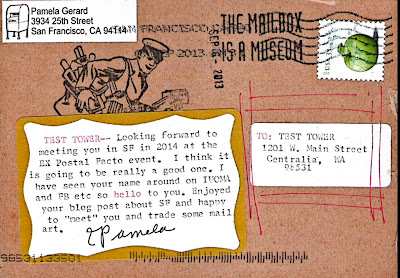 Pamela Gerard
3934 25th Street
San Francisco, CA 94114
SAN FRANCISCO
SEP 2013
THE MAILBOX
IS A MUSEUM
SEP 2013
TEST TOWER-- Looking forward to
meeting you in SF in 2014 at the
EX Postal Facto event. I think it
is going to be really a good one. I
have seen your name around on IUOMA
and FB etc so hello to you. Enjoyed
your blog post about SF and happy
to "meet" you and trade some mail
art.
Pamela
TO: TEST TOWER
1201 W. Main Street
Centralia, WA
98531